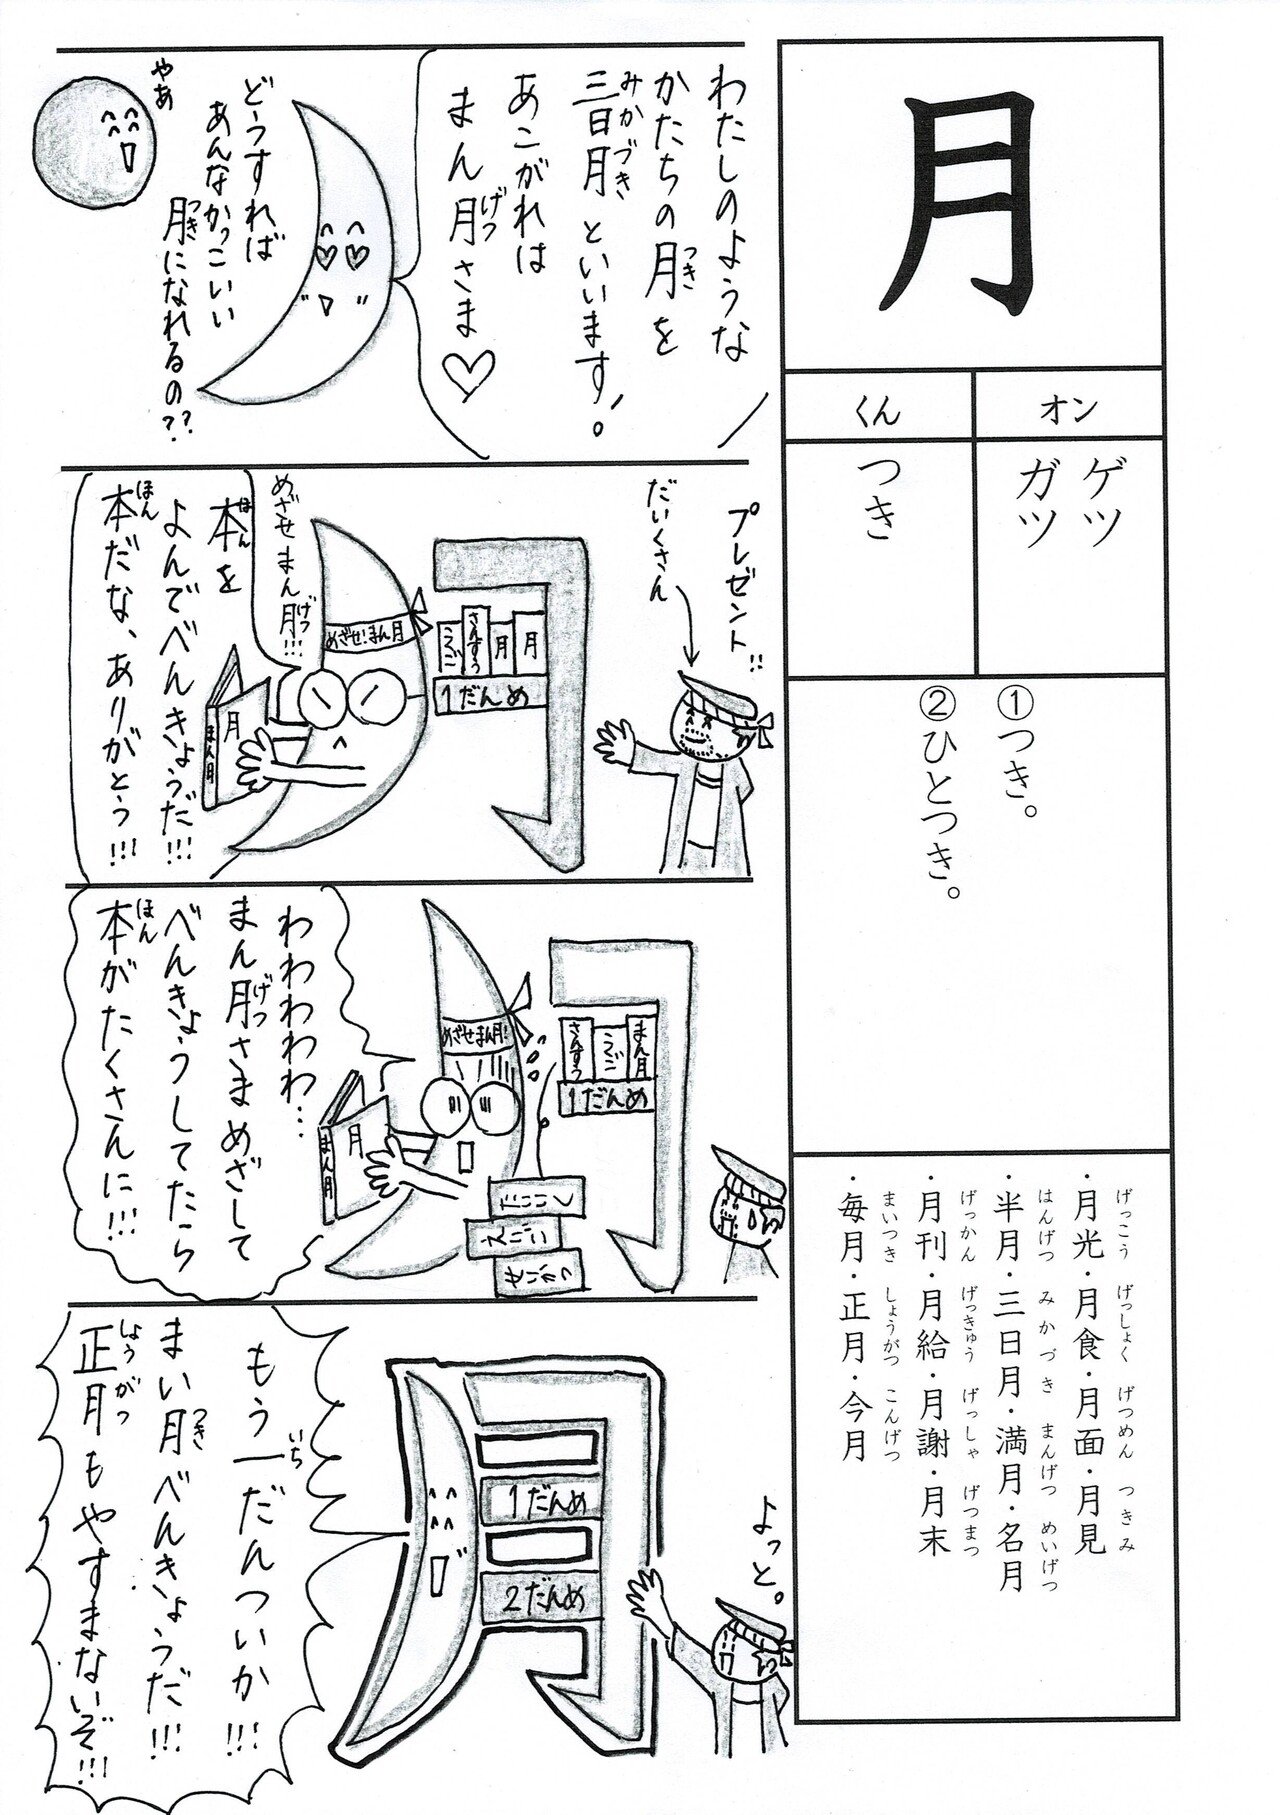 月
オン
くん
ゲツ
ガツ
つき
①つき。
②ひとつき。
げっこう げっしょく げつめん つきみ
・月光・月食・月面・月見
はんげつ みかづき まんげつ めいげつ
・半月・三日月・満月・名月
げっかん げっきゅう げっしゃ げつまつ
・月刊・月給・月謝・月末
まいつき しょうがつ こんげつ
・毎月・正月・今月
わたしのような
かたちの月を
つき
三日月といいます!。
みかづき
あこがれは
まん月さま♡
げつ
どうすれば
あんなかっこいい
月になれるの??
つき
やあ
プレゼント!!
だいくさん
月
月
さんすう
こくご
1だんめ
めざせ!まん月
めざせまん月!!!
げつ
月
まん月
本を
ほん
よんでべんきょうだ!!!
本だな、ありがとう!!!
ほん
まん月
こくご
さんすう
1だんめ
めざせまん月!
月
まん月
たいいく
えいご
せいかつ
わわわわわ...
まん月さまめざして
げつ
べんきょうしてたら
本がたくさんに!!!
ほん
よっと。
1だんめ
2だんめ
もう一だんついか!!!
いち
まい月べんきょうだ!!!
つき
正月もやすまないぞ!!!
しょうがつ